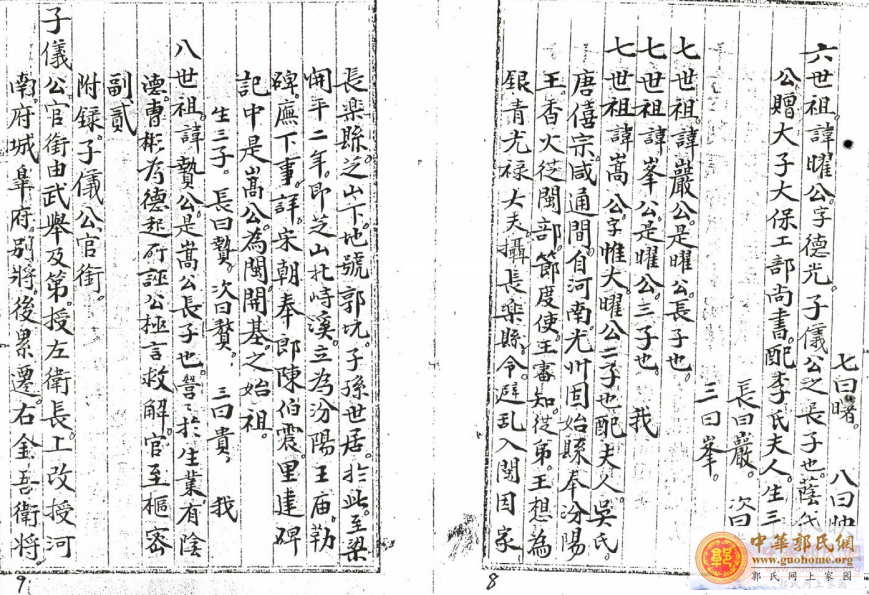 七曰曙。 八曰
六世祖。諱曜公。字德光。子儀公之長子也。蔭
公贈大子大保工部尚書。配李氏夫人。生三
長曰嚴。 次曰
三曰峯。
七世祖。諱嚴公。是曜公。長子也。
七世祖諱峯公。是曜公三子也
我
七世祖諱嵩公。字惟大曜公二子也配夫人。吳氏
唐僖宗。咸通間。自河南光州固始縣。奉汾陽
王。香火從閩部。節度使。王審知。從弟。王想為
銀青光禄大夫。攝長楽縣。令。避乱入閩因家
8
長楽縣。芝山下。地號郭坑。子孫世居。於此。至梁
開平二年。即芝山北峙溪。立為汾陽王庙。勒
碑。廡下事。詳。宋朝奉郎陳伯震。里建碑
記中。是嵩公。為閩開基之始祖。
生三子。長曰贄。次曰贅。 三曰貴。 我
八世祖。諱贄公。是嵩公。長子也。營〻於生業有陰
德。曹彬為德起所誣公極言救解。官至樞密
副貳
附録。子儀公。官銜。
子儀公官銜由武舉及第。授左衛長。工改授河
南。府城皐府。別將。後累遷。右金吾衛將
9
中華郭氏網
www.guohome.org
郭氏网上家园